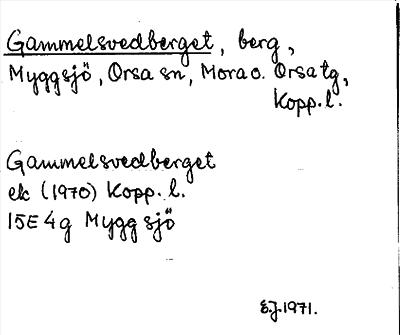 Gammelsvedberget, berg,
Myggsjö, Orsa sn, Mora o. Orsa tg,
Kopp. l.
Gammelsvedberget
ek (1970) Kopp. l.
15E 4g Myggsjö
E.J. 1971.